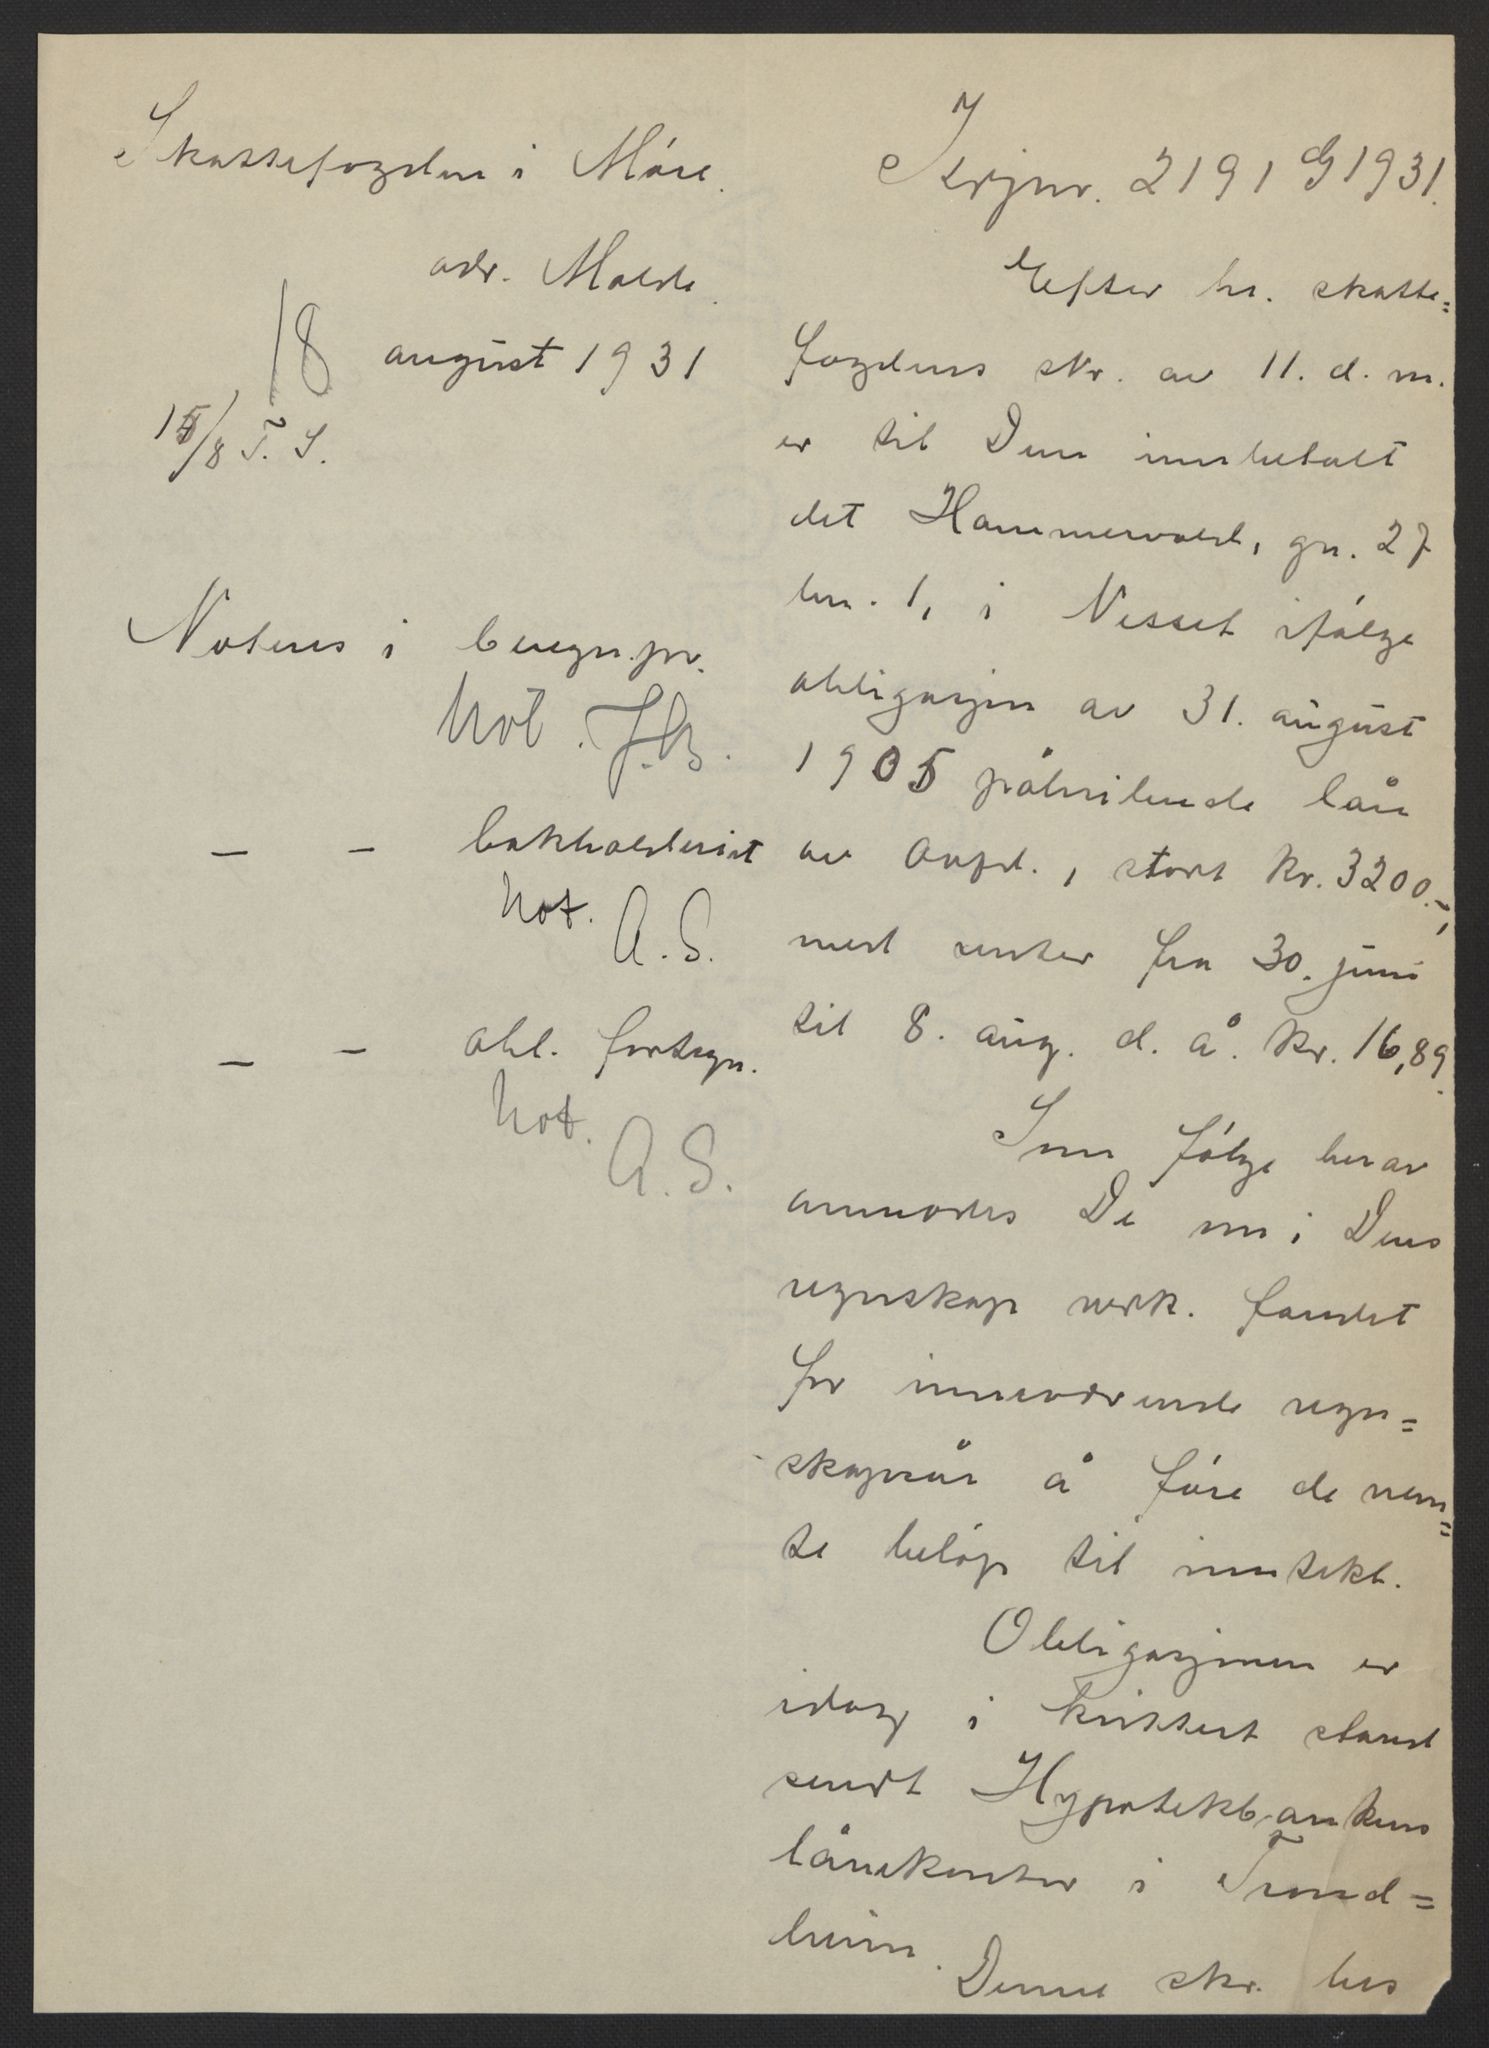 Skattefogden i Møre.
adr. Molde.
18 august 1931
15/8 T. S.
Noteres i beregn.pr.
Not. J.B.
— — bokholderiet
Not. A.S.
— — obl. fortegn.
Not.
A.S.
Jrnr. 2191 G 1931.
Efter hr. skatte=
fogdens skr. av 11. d. m.
er til Dem innbetalt
det Hammervold, gn. 27
bn. 1, i Nesset ifølge
obligasjon av 31. august
1905 påhvilende lån
av Ovfd., stort kr. 3200.-,
med renter fra 30. juni
til 8. aug. d. å. kr. 16,89.
Som følge herav
anmodes De om i Deres
regnskap vedk. fondet
for inneværende regn=
skapsår å føre de nevn=
te beløp til inntekt.
Obligasjonen er
idag i kvittert stand
sendt Hypotekbankens
lånekontor i Trond=
heim.
Denne skr. bes